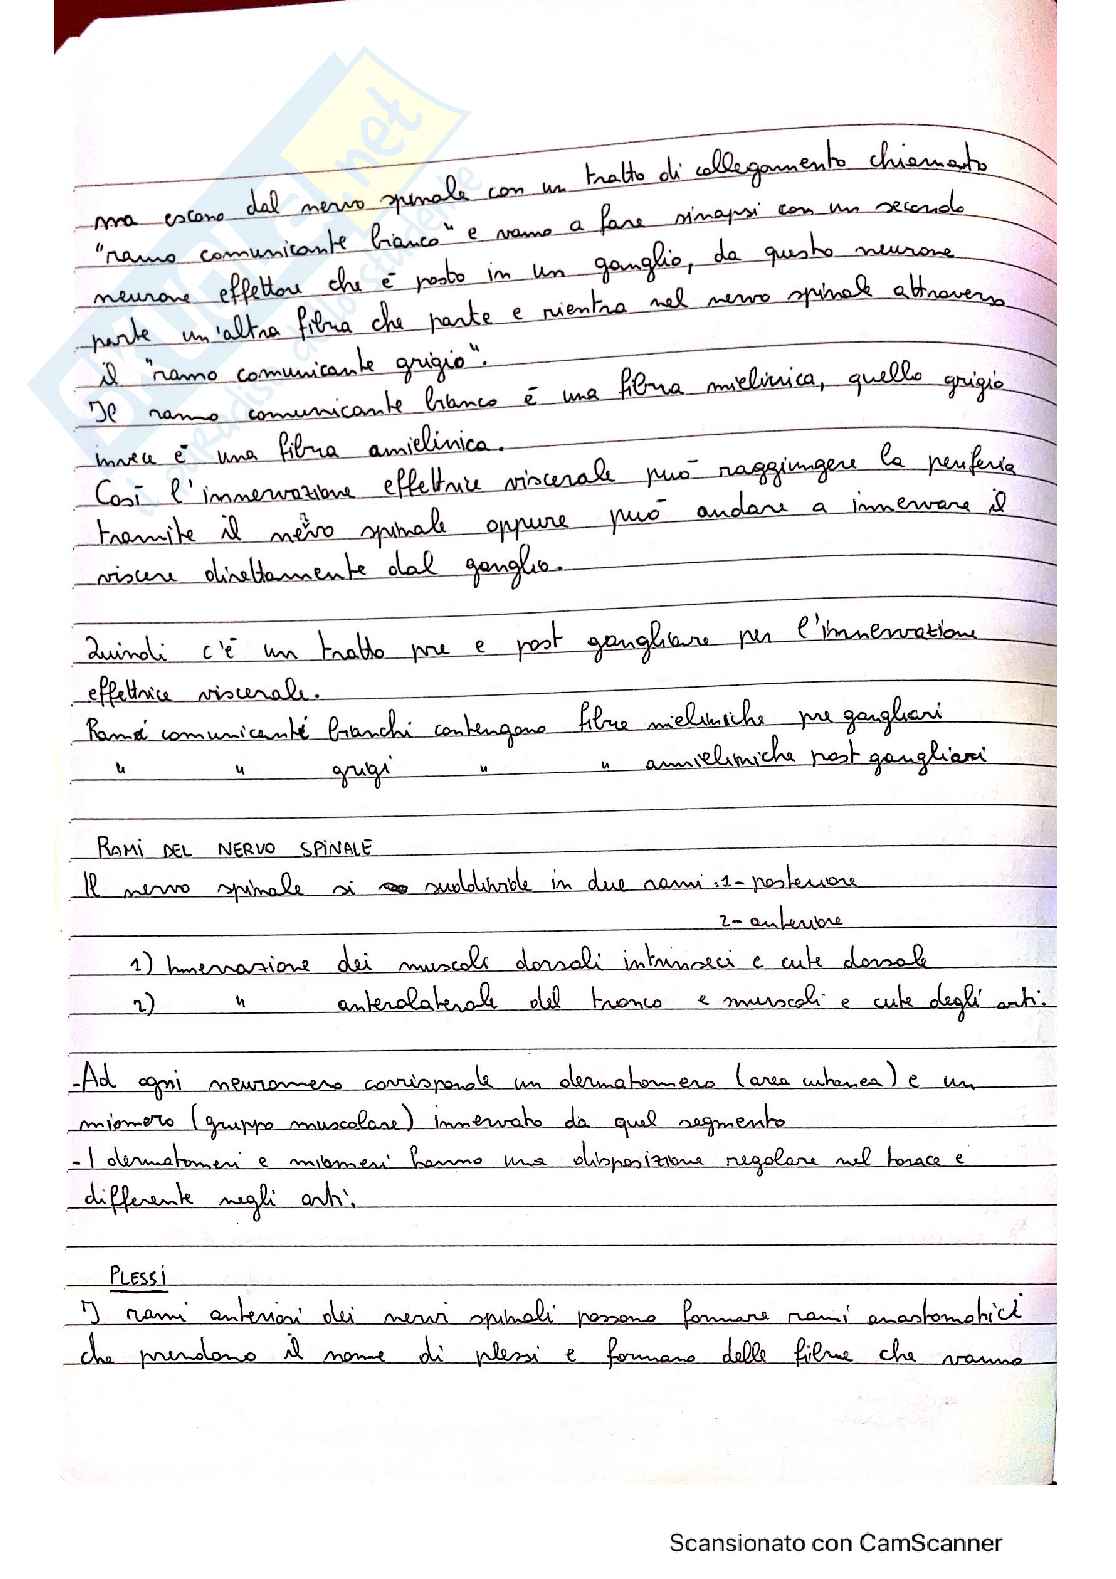 ma escono dal nervo spinale con un tratto di collegamento chiamato
"ramo comunicante bianco" e vanno a fare sinapsi con un secondo
neurone effettore che è posto in un ganglio, da questo neurone
parte un'altra fibra che parte e rientra nel nervo spinale attraverso
il "ramo comunicante grigio".
Il ramo comunicante bianco è una fibra mielinica, quello grigio
invece è una fibra amielinica.
Così l'innervazione effettrice viscerale può raggiungere la periferia
tramite il nervo spinale oppure può andare a innervare il
viscere direttamente dal ganglio.
Quindi c'è un tratto pre e post gangliare per l'innervazione
effettrice viscerale.
Rami comunicanti bianchi contengono fibre mieliniche pre gangliari
" " grigi " " amieliniche post gangliari
RAMI DEL NERVO SPINALE
Il nervo spinale si suddivide in due rami: 1- posteriore
2- anteriore
1) Innervazione dei muscoli dorsali intrinseci e cute dorsale
2) " anterolaterale del tronco e muscoli e cute degli arti.
- Ad ogni neuromero corrisponde un dermatomero (area cutanea) e un
miomero (gruppo muscolare) innervato da quel segmento
- I dermatomeri e miomeri hanno una disposizione regolare nel torace e
differente negli arti.
PLESSI
I rami anteriori dei nervi spinali possono formare rami anastomotici
che prendono il nome di plessi e formano delle fibre che vanno
Scansionato con CamScanner